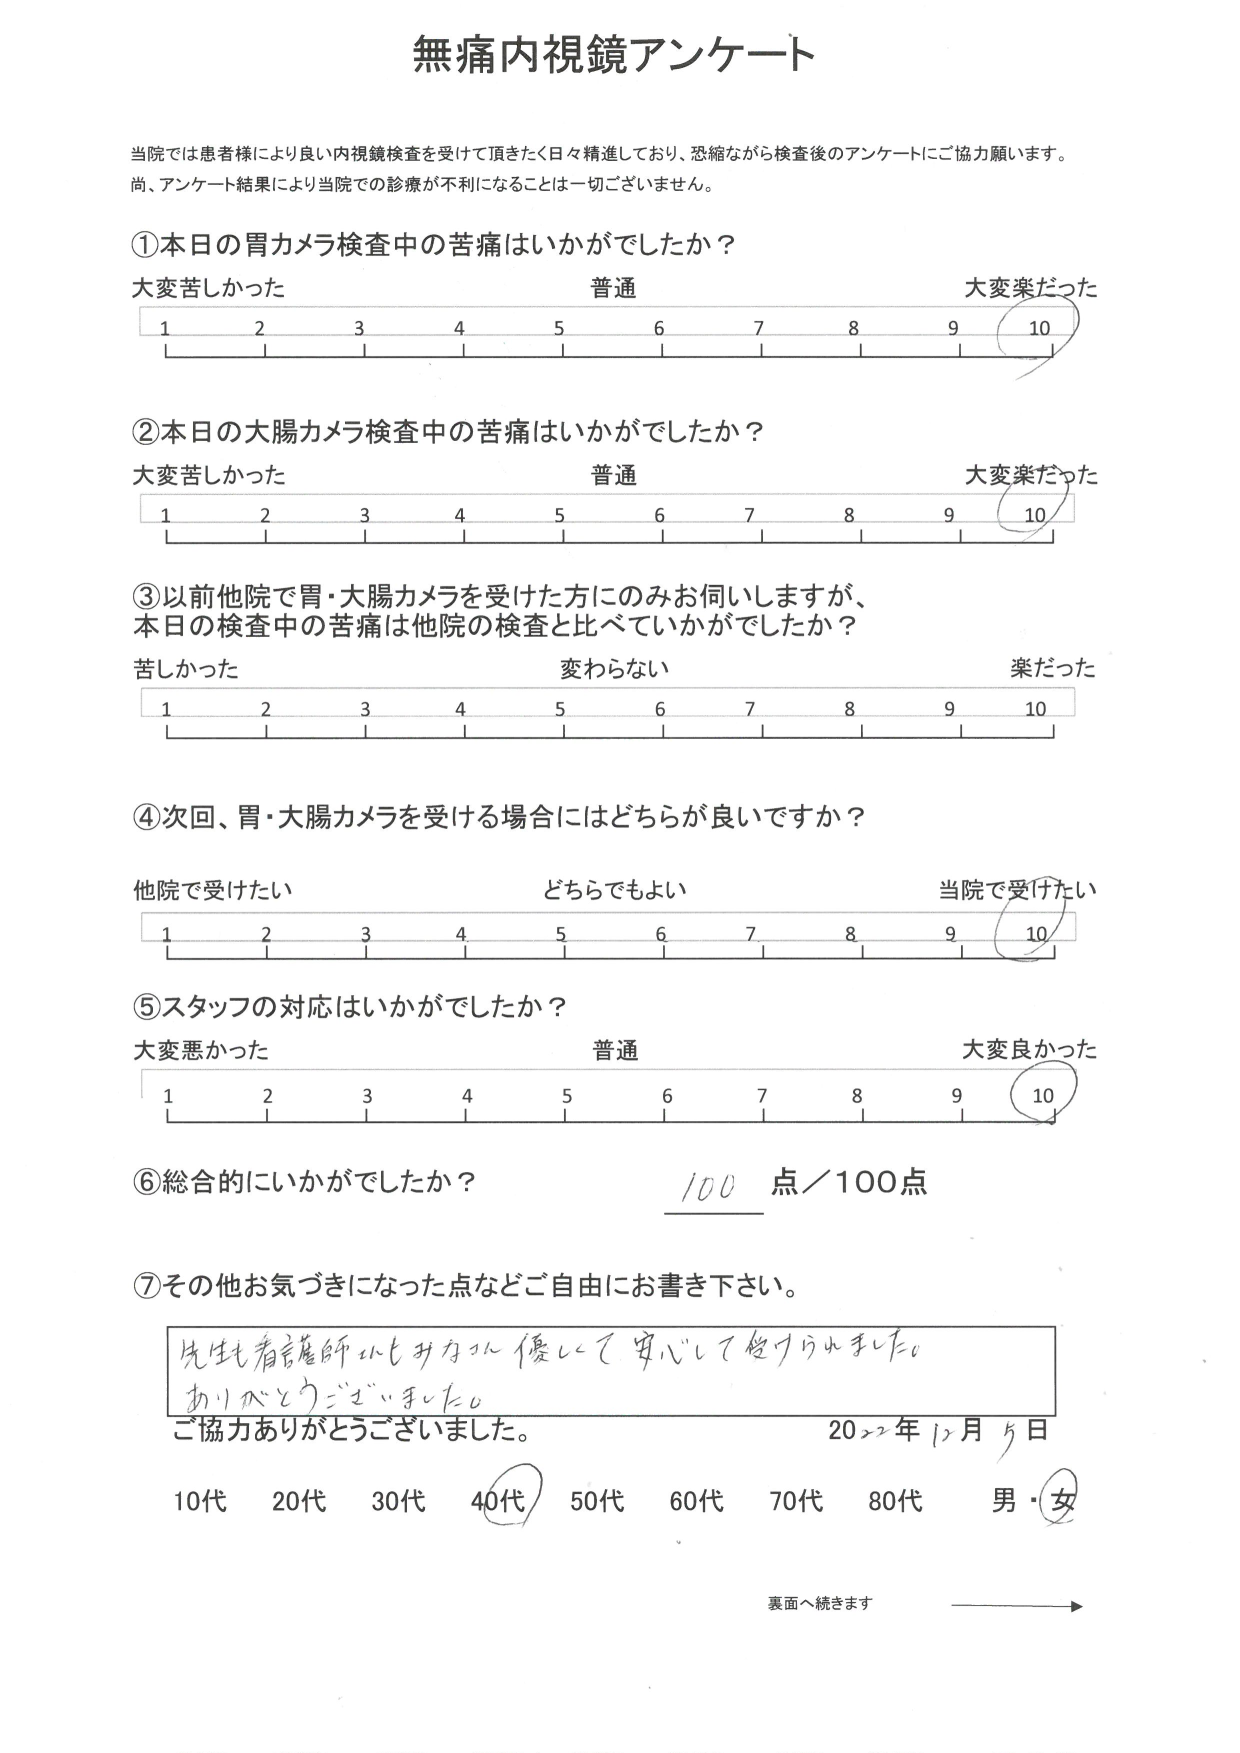 無痛内視鏡アンケート
当院では患者様により良い内視鏡検査を受けて頂きたく日々精進しており、恐縮ながら検査後のアンケートにご協力願います。
尚、アンケート結果により当院での診療が不利になることは一切ございません。
①本日の胃カメラ検査中の苦痛はいかがでしたか？
大変苦しかった 普通 大変楽だった
1 2 3 4 5 6 7 8 9 10
②本日の大腸カメラ検査中の苦痛はいかがでしたか？
大変苦しかった 普通 大変楽だった
1 2 3 4 5 6 7 8 9 10
③以前他院で胃・大腸カメラを受けた方にのみお伺いしますが、
本日の検査中の苦痛は他院の検査と比べていかがでしたか？
苦しかった 変わらない 楽だった
1 2 3 4 5 6 7 8 9 10
④次回、胃・大腸カメラを受ける場合にはどちらが良いですか？
他院で受けたい どちらでもよい 当院で受けたい
1 2 3 4 5 6 7 8 9 10
⑤スタッフの対応はいかがでしたか？
大変悪かった 普通 大変良かった
1 2 3 4 5 6 7 8 9 10
⑥総合的にいかがでしたか？ 100 点／100点
⑦その他お気づきになった点などご自由にお書き下さい。
先生も看護師さんもみなさん優しくて安心して受けられました。
ありがとうございました。
ご協力ありがとうございました。 2022年12月5日
10代 20代 30代 40代 50代 60代 70代 80代 男・女
裏面へ続きます